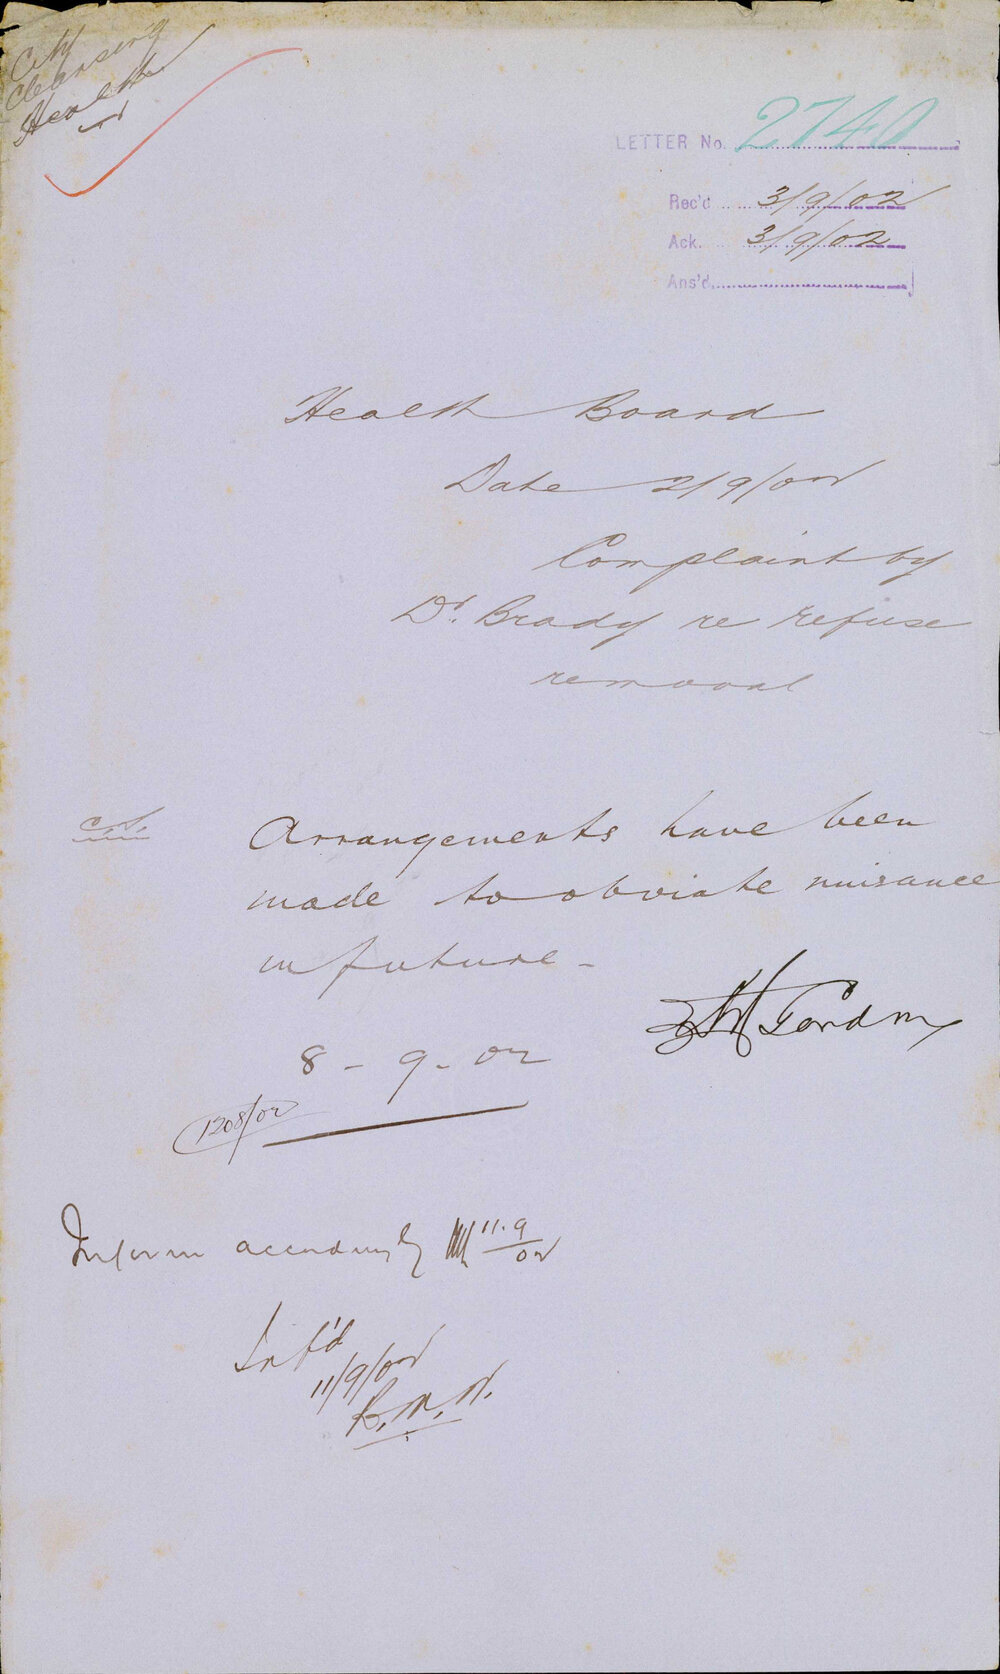 City
Cleansing
Health
LETTER No. 2740
Rec'd 3/9/02
Ack. 3/9/02
Ans'd
Health Board
Date 2/9/02
Complaint by
Dr. Brady re refuse
removal
Arrangements have been
made to obviate nuisance
in future -
Gordon
8 - 9 - 02
1208/02
Inform accordingly 11.9/02
Inf'd
11/9/02